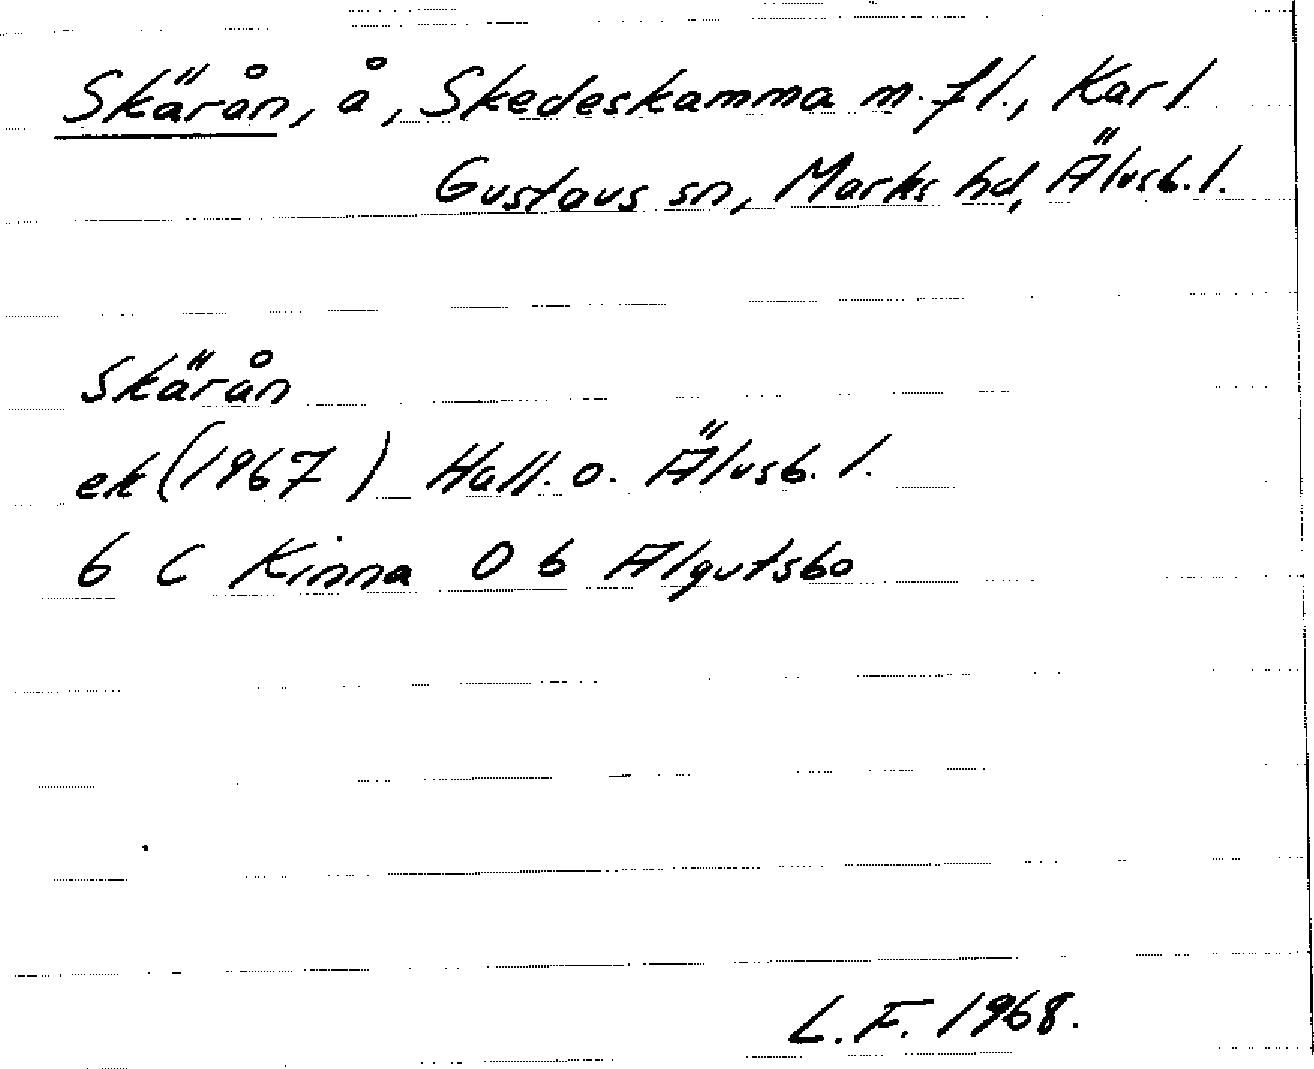 Skärån, å, Skedeskamma m.fl., Karl
Gustavs sn, Marks hd, Älvsb.l.
Skärån
ek (1967) Hall. o. Älvsb. l.
6 C Kinna 0 b Algutsbo
L.F. 1968.